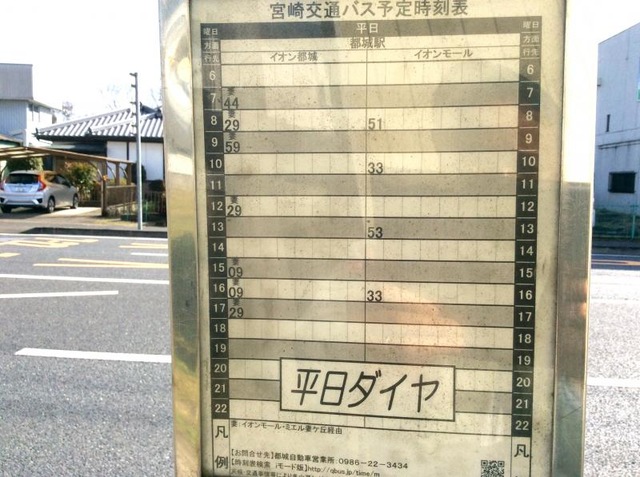 宮崎交通バス予定時刻表
曜日 平日 曜日
方面 都城駅 方面
行先 イオン都城 イオンモール 行先
6 6
7 妻44 7
8 妻29 51 8
9 妻59 9
10 33 10
11 11
12 妻29 12
13 53 13
14 14
15 妻09 15
16 妻09 33 16
17 妻29 17
18 18
19 19
20 20
21 21
22 22
平日ダイヤ
凡例 妻:イオンモール・ミエル妻ケ丘経由 凡
【お問合せ先】都城自動車営業所:0986-22-3434
【時刻表検索 iモード版】http://qbus.jp/time/m